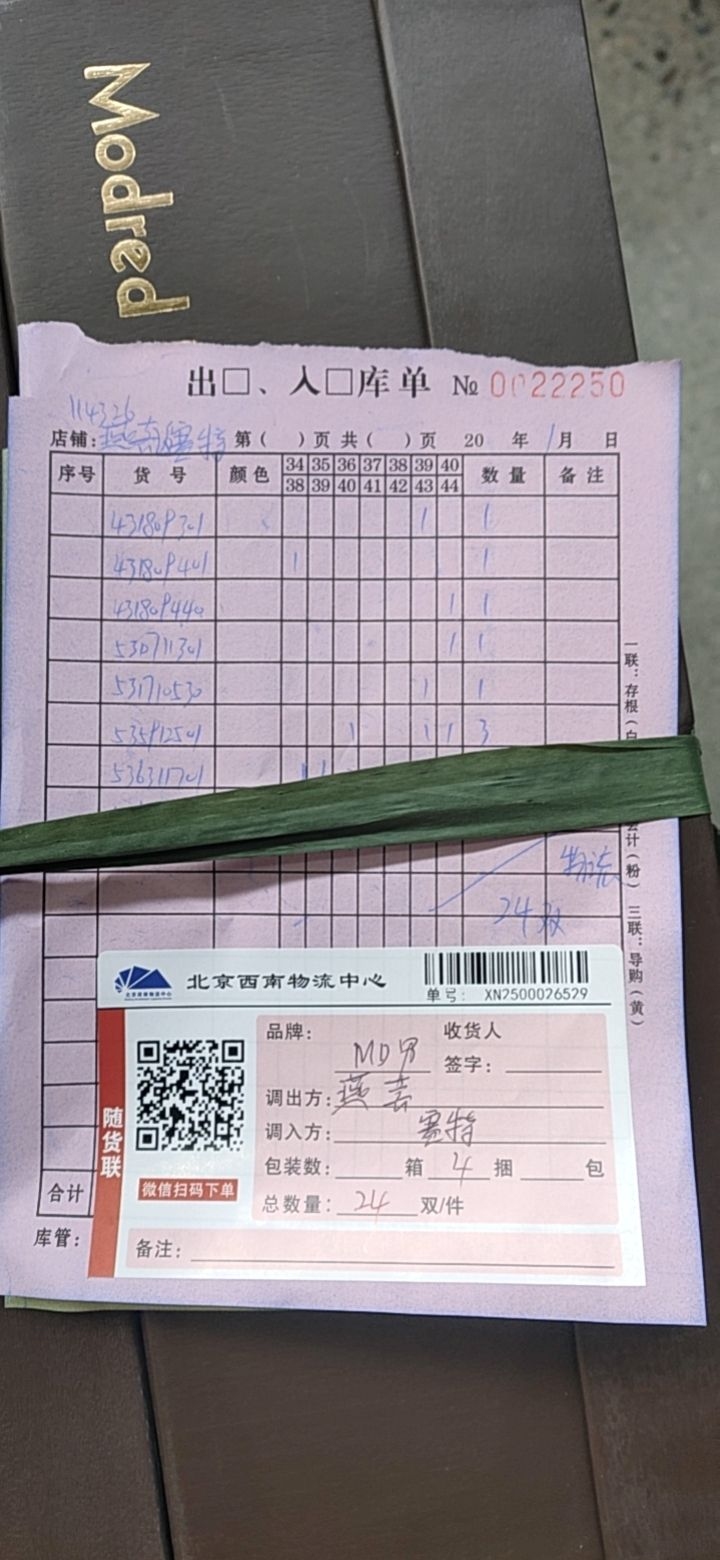 Modred
出□、入□库单 № 0022250
114326
店铺: 第( )页 共( )页 20 年 1月 日
序号 货号 颜色 34 35 36 37 38 39 40 数量 备注
38 39 40 41 42 43 44
431809301 1 1
431809401 1 1
431809440 1 1
530711301 1 1
531710530 1 1
535912501 1 1 1 3
536311701
物流
24双
合计
库管:
一联:存根(白
计(粉) 三联:导购(黄)
北京西南物流中心
单号: XN2500026529
随货联
微信扫码下单
品牌: MD男 收货人
签字:
调出方:
调入方: 赛特
包装数: 箱 4 捆 包
总数量: 24 双/件
备注: